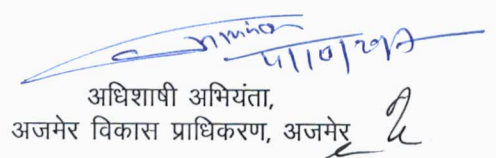 अधिशाषी अभियंता,
अजमेर विकास प्राधिकरण, अजमेर